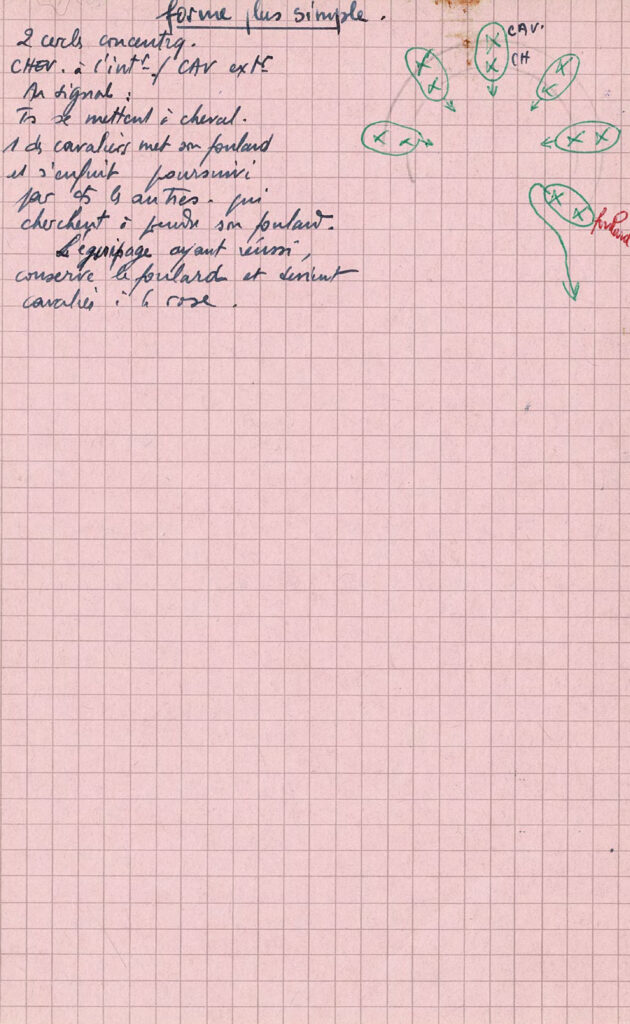 forme plus simple.
2 cercls concentriq.
CHEV. à l'intr / CAV extr
Au signal :
Ts se mettent à cheval.
1 des cavaliers met son foulard
et s'enfuit poursuivi
par ts les autres. qui
cherchent à prendre son foulard.
L'équipage ayant réussi,
conserve le foulard et devient
cavalier à la rose.
CAV.
CH
foulard